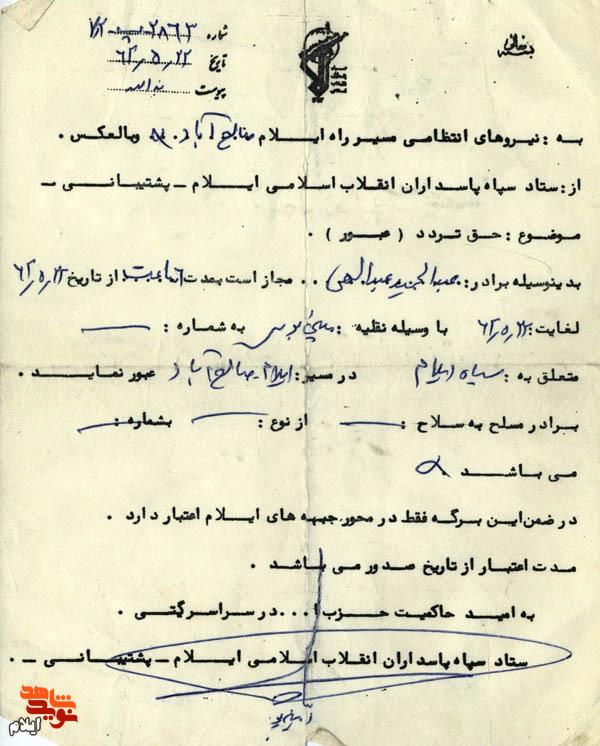 بسمه تعالی
شماره ۲۸۶۳
تاریخ ۶۲٫۵٫۲۲
پیوست ندارد
به : نیروهای انتظامی مسیر راه ایلام صالح آباد . وبالعکس .
از : ستاد سپاه پاسداران انقلاب اسلامی ایلام ــ پشتیبانی ــ
موضوع : حق تردد ( عبور ) .
بدینوسیله برادر : عبدالحمید عبدالهی . . مجاز است بمدت ساعت از تاریخ
لغایت : ۶۲٫۵٫ با وسیله نقلیه : مینی بوس به شماره : ــ
متعلق به : سپاه ایلام در مسیر : ایلام صالح آباد عبور نماید .
برادر مسلح به سلاح : ــ از نوع : ــ بشماره : ــ
می باشد
در ضمن این برگه فقط در محور جبهه های ایلام اعتبار دارد .
مدت اعتبار از تاریخ صدور می باشد .
به امید حاکمیت حزب ا . . . در سراسر گیتی .
ستاد سپاه پاسداران انقلاب اسلامی ایلام ــ پشتیبانی ــ .
نوید شاهد
ایلام